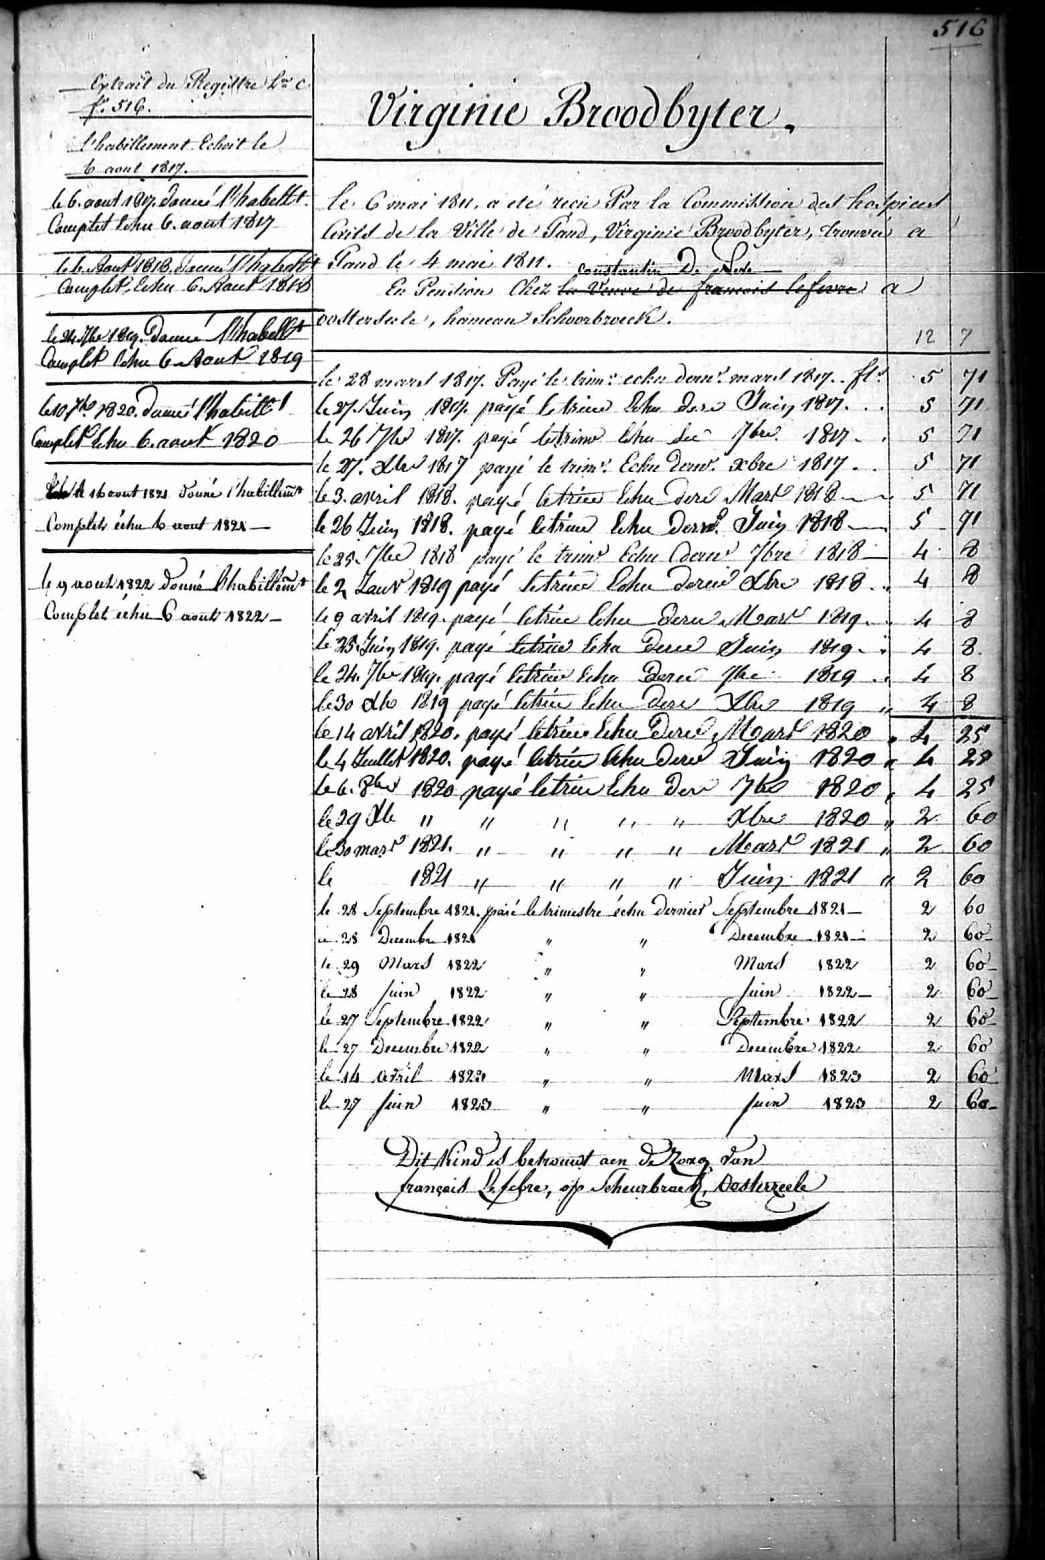 516
Extrait du Registre Lre C
fo. 516.
l'habillement Echoit le
6 aout 1817.
le 6. aout 1817. donné l'habillt.
Complet Echu 6. aout 1817
le 6. Aout 1818. donné l'habillt
Complet, Echu 6. Aout 1818
le 24 7bre 1819. donné l'habillt
Complet Echu 6 Aout 1819
le 10 7bre 1820. donné l'habillt
Complet Echu 6. aout 1820
le 16 aout 1821 donné l'habillemt
Complet échu 6 aout 1821 —
le 9 aout 1822 donné l'habillemt
Complet echu 6 août 1822 —
Virginie Broodbyter.
le 6 mai 1811. a eté recue Par la Commission des hospices
Civils de la Ville de Gand, Virginie Broodbyter, trouvée a
Gand le 4 mai 1811.
constantin De
En Pension Chez la Veuve de francois lefevre a
oosterseele, hameau Schoorbroeck.
12 7
le 28 mars 1817. Payé le trimre echu dernr. mars 1817. fls. 5 71
le 27. Juin 1817. payé le trim Echu dere Juin 1817. 5 71
le 26 7bre 1817. payé le trim Echu 7bre 1817. 5 71
le 27. Xbre 1817 payé le trimre. Echu dernr. Xbre 1817. 5 71
le 3. avril 1818. payé le trim Echu dere Mars 1818 5 71
le 26 Juin 1818. payé le trim Echu dernr Juin 1818 5 71
le 25. 7bre 1818 payé le trimre Echu dernr 7bre 1818 4 8
le 2 Janv 1819 payé le trim Echu dere Xbre 1818 4 8
le 9 avril 1819. payé le trim Echu dere Mars 1819. 4 8
le 25. Juin 1819. payé le trim Echu Dere Juin 1819. 4 8
le 24. 7bre 1819. payé le trim Echu Dere 7bre 1819 4 8
le 30 Xbre 1819 payé le trim Echu dere Xbre 1819 4 8
le 14 avril 1820. payé le trim Echu Dere Mars 1820 4 25
le 4 Juillet 1820. payé le trim Echu dere Juin 1820 4 25
le 6. 8bre 1820 payé le trim Echu Dere 7bre 1820 4 25
le 29 Xbre " " " " " Xbre 1820 2 60
le 30 mars 1821. " " " " Mars 1821 2 60
le 1821 " " " " Juin 1821 2 60
le 28 Septembre 1821. paié le trimestre échu dernier Septembre 1821 — 2 60
le 28 Decembre 1821 " " Decembre 1821 — 2 60
le 29 Mars 1822 " " Mars 1822 2 60
le 28 Juin 1822 " " Juin 1822 — 2 60
le 27 Septembre 1822 " " Septembre 1822 2 60
le 27 Decembre 1822 " " Decembre 1822 2 60
le 14 Avril 1823 " " Mars 1823 2 60
le 27 Juin 1823 " " Juin 1823 2 60
Dit Kind is betrouwt aen de Zorg van
françois Lefebre, op Scheurbroeck, Oosterzeele